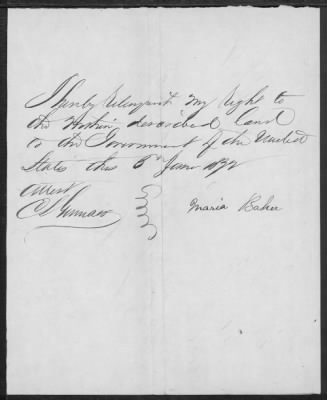 I hereby relenquish my right to
the Within described land
to the Government of the United
States this 6th June 1872
Attest
Maria Baker